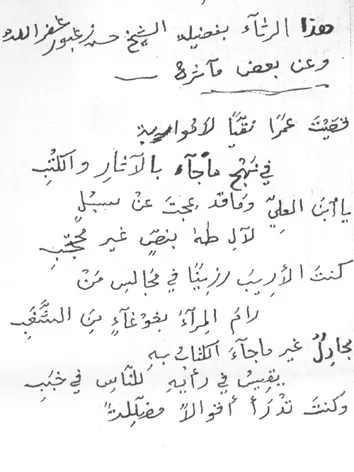 هذا الرثآء بفضيلة الشيخ حسن زعبور غفر الله له
وعن بعض مآثره
قضيْتَ عمرًا نقيًّا لا تُوارِيهِ
في نهْجِ ماجآء بالآثارِ والكُتُبِ
يا ابنَ العليِّ وما قد عجتَ عنْ سبُلٍ
لآلِ طهَ بنصٍّ غير محجّبِ
كنتَ الأريبَ رزينًا في مجالسِ مَنْ
رامَ المرآءَ بغوغآءٍ منَ الشَّغَبِ
مجادِلٌ غير ماجآءَ الكتابُ بهِ
يقيسُ في رأيِهِ للنّاسِ في خبَبِ
وكنتَ تدْرَأ أقوالاً مضلِّلةً